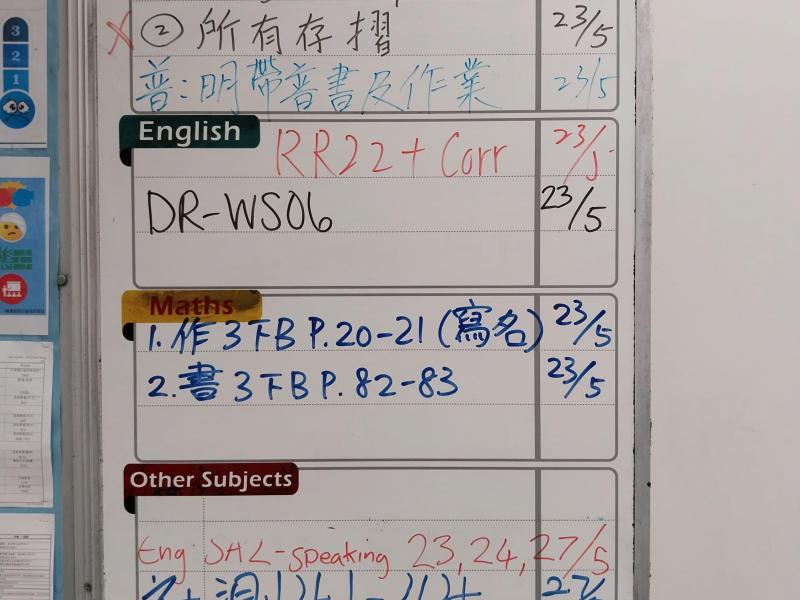 3
2
1
② 所有存摺 23/5
普:明帶普書及作業 23/5
English
RR22+Corr 23/5
DR-WS06 23/5
Maths
1.作3下B P.20-21(寫名) 23/5
2.書3下B P.82-83 23/5
Other Subjects
Eng SAL-speaking 23,24,27/5